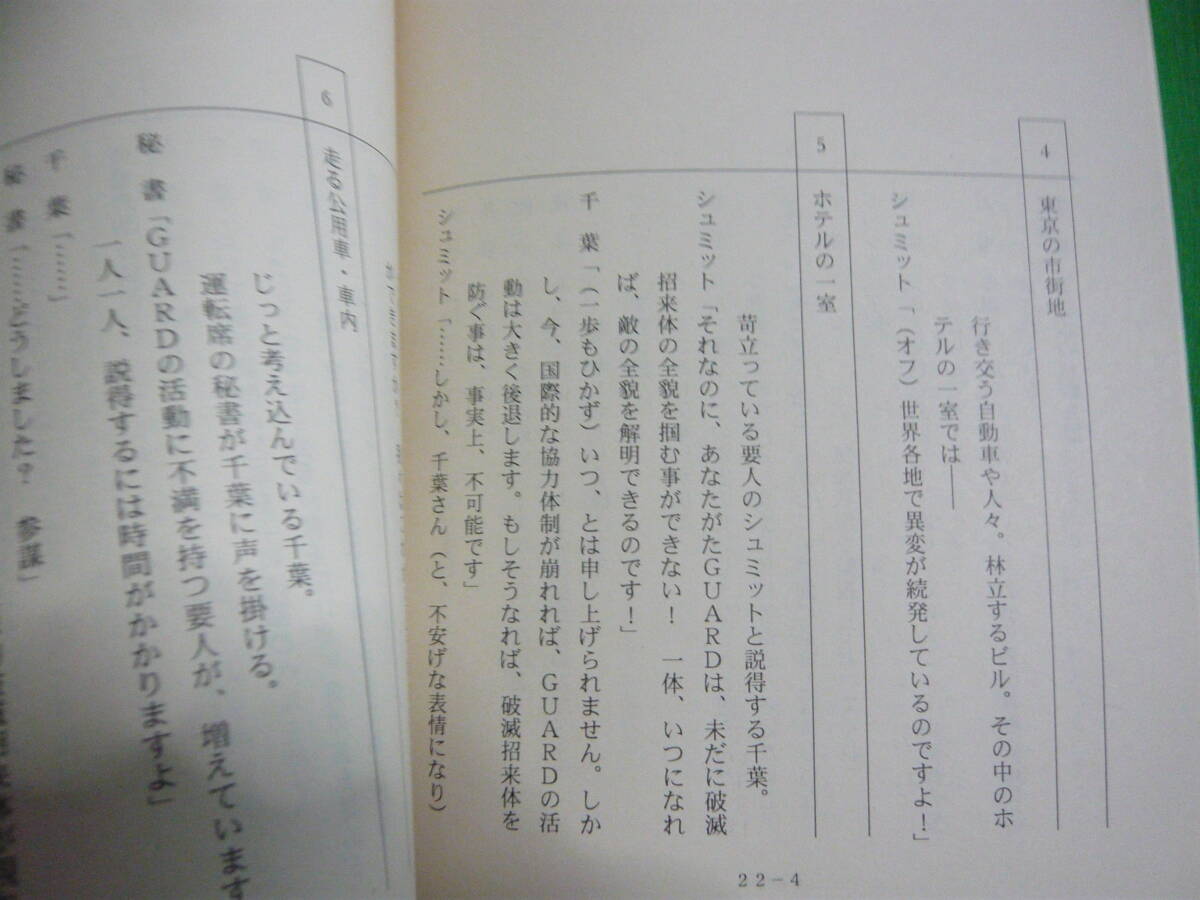 4 東京の市街地
行き交う自動車や人々。林立するビル。その中のホ
テルの一室では――
シュミット「（オフ）世界各地で異変が続発しているのですよ！」
5 ホテルの一室
苛立っている要人のシュミットと説得する千葉。
シュミット「それなのに、あなたがたＧＵＡＲＤは、未だに破滅
招来体の全貌を掴む事ができない！　一体、いつになれ
ば、敵の全貌を解明できるのです！」
千　葉「（一歩もひかず）いつ、とは申し上げられません。しか
し、今、国際的な協力体制が崩れれば、ＧＵＡＲＤの活
動は大きく後退します。もしそうなれば、破滅招来体を
防ぐ事は、事実上、不可能です」
シュミット「……しかし、千葉さん（と、不安げな表情になり）
22－4
6 走る公用車・車内
じっと考え込んでいる千葉。
運転席の秘書が千葉に声を掛ける。
秘　書「ＧＵＡＲＤの活動に不満を持つ要人が、増えています
一人一人、説得するには時間がかかりますよ」
千　葉「……」
秘　書「……どうしました？　参謀」